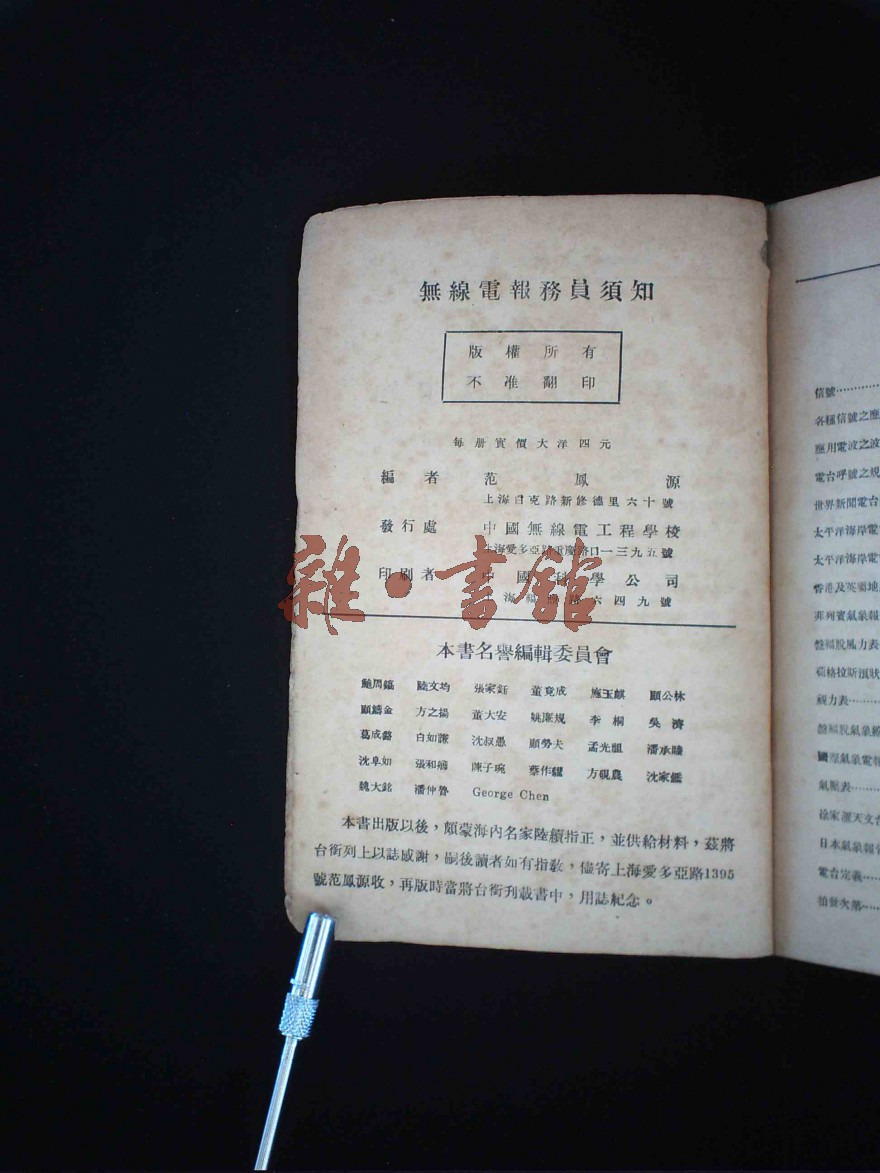 無線電報務員須知
版權所有
不准翻印
每册實價大洋四元
編者 范鳳源
上海白克路新修德里六十號
發行處 中國無線電工程學校
上海愛多亞路重慶路口一三九五號
印刷者 中國科學公司
海福路六四九號
雜·書館
本書名譽編輯委員會
鮑周鎬 陸文均 張家鈺 董竟成 施玉麒 顧公林
顧鑄金 方之揚 董大安 姚漸規 李桐 吳濟
葛成 白如謙 沈叔愚 顧勞夫 孟光 潘承
沈阜如 張和 陳子琬 蔡作 方硯農 沈家
魏大銘 潘仲魯 George Chen
本書出版以後，頗蒙海內名家陸續指正，並供給材料，茲將
台銜列上以誌感謝，嗣後讀者如有指敎，儘寄上海愛多亞路1395
號范鳳源收，再版時當將台銜刋載書中，用誌紀念。
信號
各種信號之應
應用電波之波
電台呼號之規
世界新聞電台
太平洋海岸電
太平洋海岸電
香港及英屬地
菲列賓氣象報
風力表
視力表
國際氣象電報
氣壓表
徐家滙天文台
日本氣象報告
電台定義
拍發次第